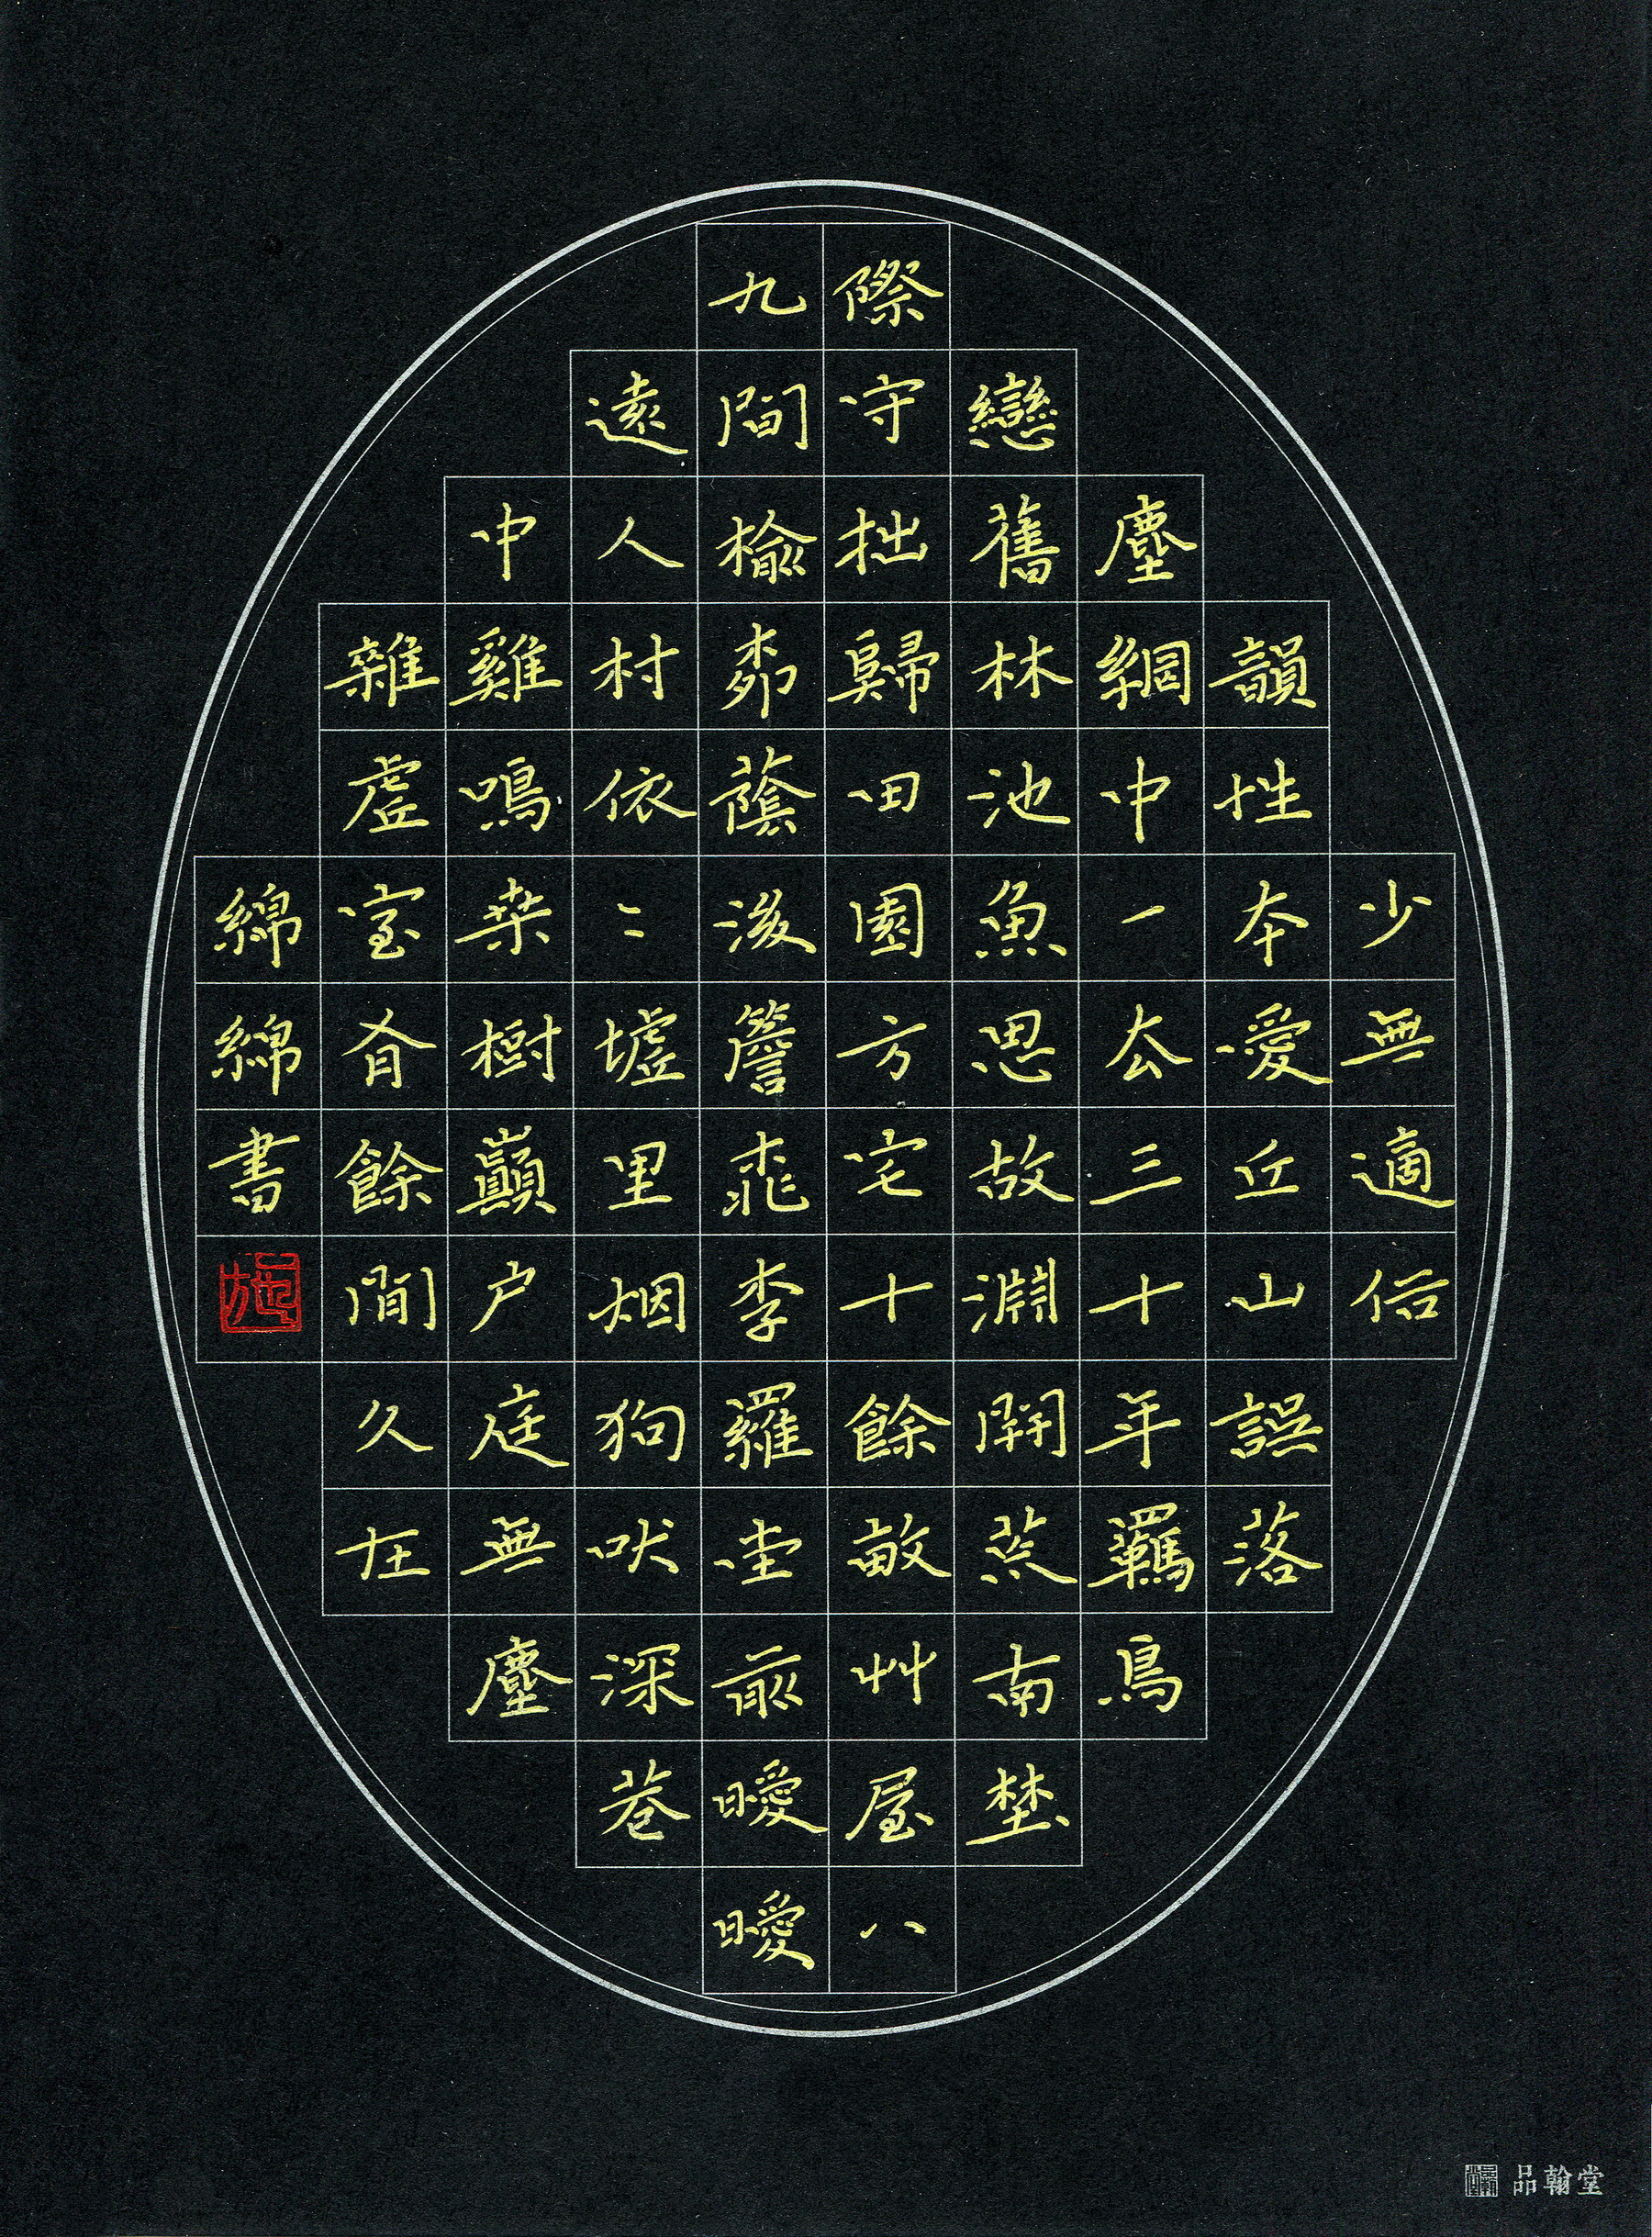 少無適俗
韻性本愛丘山誤落
塵網中一去三十年羈鳥
戀舊林池魚思故淵開荒南埜
際守拙歸田園方宅十餘畝艸屋八
九間榆柳蔭後簷桃李羅堂前曖曖
遠人村依〻墟里烟狗吠深巷
中雞鳴桒樹巔户庭無塵
雜虛室有餘閒久在
綿綿書
施
品翰堂